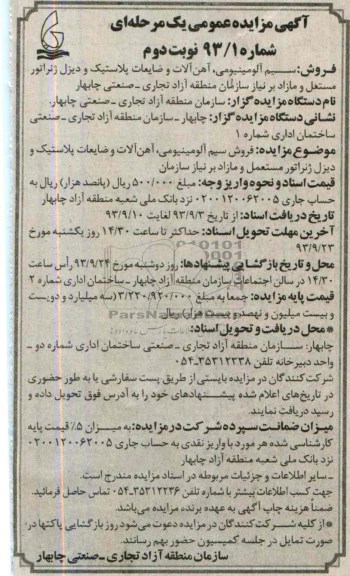 آگهی مزایده عمومی یک مرحله‌ای
شماره ۹۳/۱ نوبت دوم
فروش: سیم آلومینیومی، آهن‌آلات و ضایعات پلاستیک و دیزل ژنراتور
مستعمل و مازاد بر نیاز سازمان منطقه آزاد تجاری - صنعتی چابهار
نام دستگاه مزایده گزار: سازمان منطقه آزاد تجاری - صنعتی چابهار
نشانی دستگاه مزایده گزار: چابهار - سازمان منطقه آزاد تجاری - صنعتی
ساختمان اداری شماره ۱
موضوع مزایده: فروش سیم آلومینیومی، آهن‌آلات و ضایعات پلاستیک و
دیزل ژنراتور مستعمل و مازاد بر نیاز سازمان
قیمت اسناد و نحوه واریز وجه: مبلغ ۵۰۰/۰۰۰ ریال (پانصد هزار) ریال به
حساب جاری ۰۲۰۰۱۲۰۰۶۲۰۰۵ نزد بانک ملی شعبه منطقه آزاد چابهار
تاریخ دریافت اسناد: از تاریخ ۹۳/۹/۳ لغایت ۹۳/۹/۱۰
آخرین مهلت تحویل اسناد: حداکثر تا ساعت ۱۴/۳۰ روز یکشنبه مورخ
۹۳/۹/۲۳
محل و تاریخ بازگشایی پیشنهادها: روز دوشنبه مورخ ۹۳/۹/۲۴ رأس ساعت
۱۴/۳۰ در سالن اجتماعات سازمان منطقه آزاد چابهار - ساختمان اداری شماره ۲
قیمت پایه مزایده: جمعا به مبلغ ۳/۲۲۰/۹۲۰/۰۰۰ (سه میلیارد و دویست
و بیست میلیون و نهصد و بیست هزار) ریال
* محل دریافت و تحویل اسناد:
چابهار: سازمان منطقه آزاد تجاری - صنعتی ساختمان اداری شماره دو -
واحد دبیرخانه تلفن ۳۵۳۱۲۲۳۸-۰۵۴
شرکت کنندگان در مزایده بایستی از طریق پست سفارشی یا به طور حضوری
در تاریخ‌های اعلام شده پیشنهادهای خود را به آدرس فوق تحویل داده و
رسید دریافت نمایند.
میزان ضمانت سپرده شرکت در مزایده: به میزان ۵٪ قیمت پایه
کارشناسی شده هر مورد با واریز نقدی به حساب جاری ۰۲۰۰۱۲۰۰۶۲۰۰۵
نزد بانک ملی شعبه منطقه آزاد چابهار
- سایر اطلاعات و جزئیات مربوطه در اسناد مزایده مندرج است.
جهت کسب اطلاعات بیشتر با شماره تلفن ۳۵۳۱۲۲۳۶-۰۵۴ تماس حاصل فرمائید.
ضمناً هزینه چاپ آگهی به عهده برنده مزایده می‌باشد.
* از کلیه شرکت کنندگان در مزایده دعوت می‌شود روز بازگشایی پاکتها در
صورت تمایل در جلسه کمیسیون حضور بهم رسانند.
سازمان منطقه آزاد تجاری - صنعتی چابهار